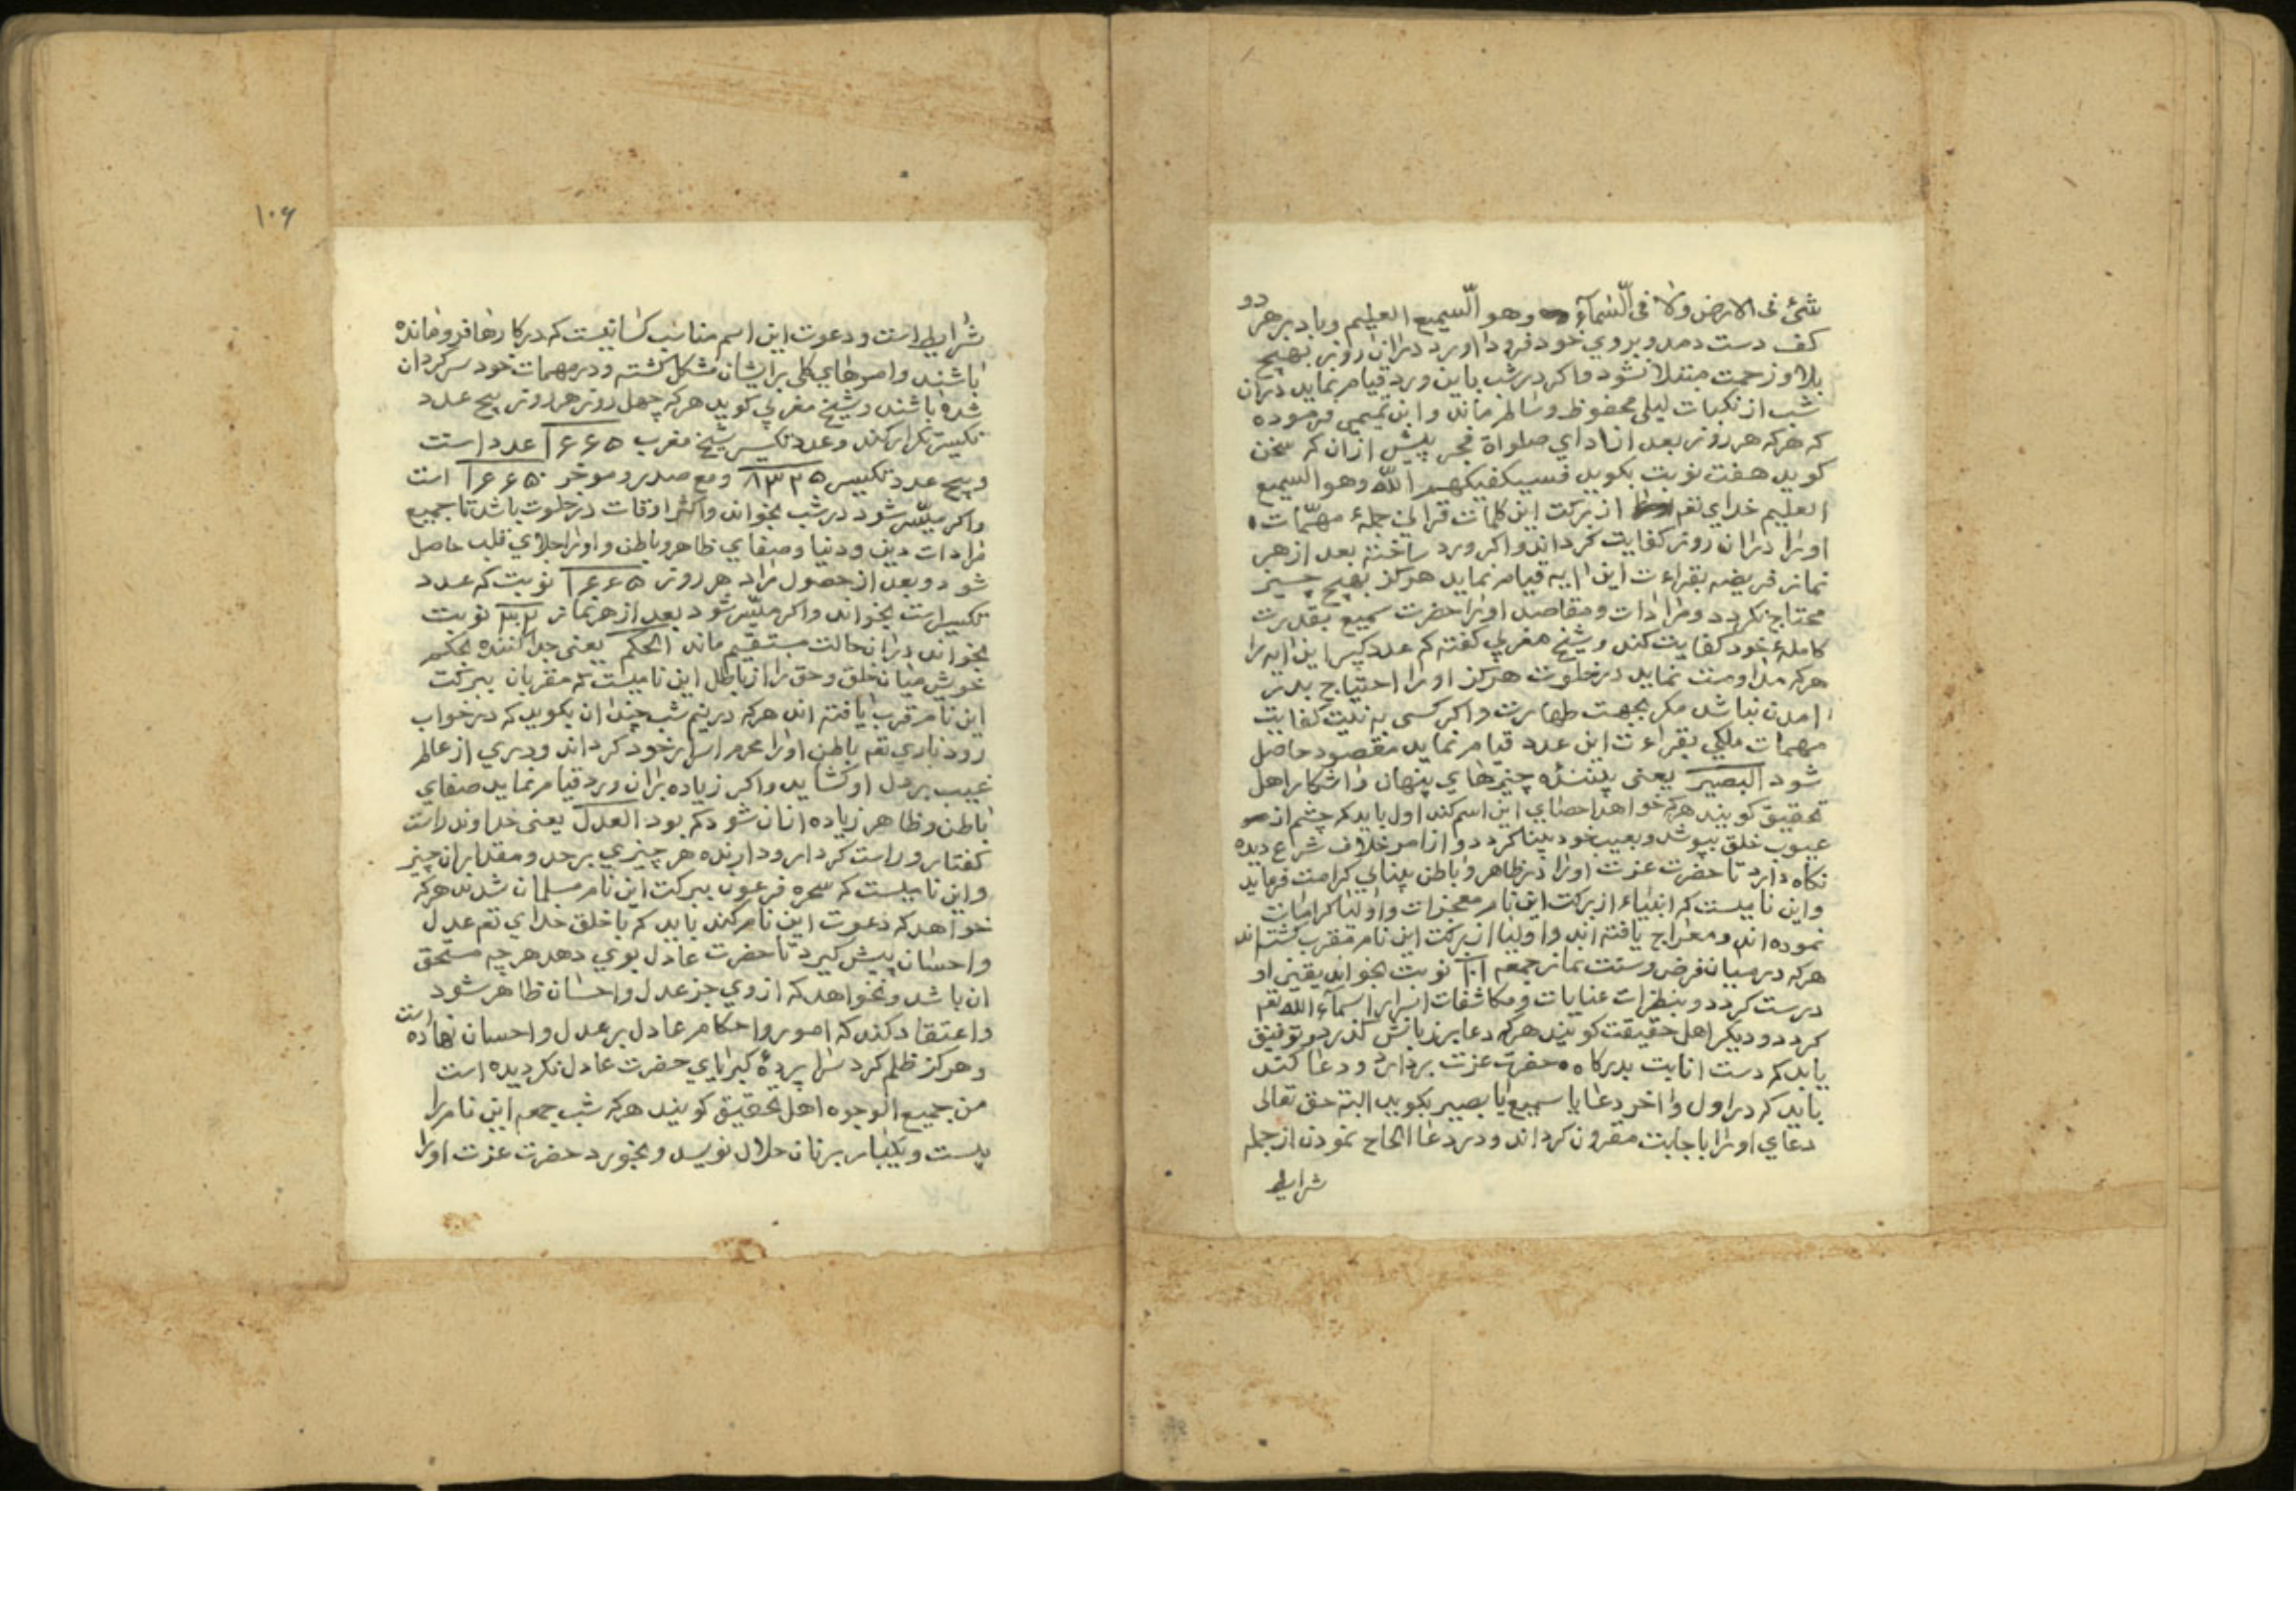 شئ فی الارض ولا فی السّمآء وهو السّمیع العلیم وباد بر هر دو
کف دست دمد و بروي خود فرود اورد دران روز بهیچ
بلا و زحمت مبتلا نشود و اکر در شب باین ورد قیام نماید دران
شب از نکبات لیلی محفوظ و سالم ماند و ابن تمیمی فرموده
که هرکه هر روز بعد از اداي صلواة فجر پیش ازان که سخن
کوید هفت نوبت بکوید فسیکفیکهم الله وهو السمیع
العلیم خداي تعم از برکت این کلمات قرانی جملهٔ مهمّات
اورا دران روز کفایت کرداند و اکر ورد ساخته بعد از هر
نماز فریضه بقراءت این ایه قیام نماید هرکز بهیچ چیز
محتاج نکردد و مرادات و مقاصد اورا حضرت سمیع بقدرت
کاملهٔ خود کفایت کند و شیخ مغربي کفته که عدد کپیر این ایه را
هرکه مداومت نماید در خلوت هرکز اورا احتیاج بدر
امدن نباشد مکر بجهت طهارت و اکر کسی به نیت کفایت
مهمات ملکي بقراءت این عدد قیام نماید مقصود حاصل
شود البصیر یعنی بیننده چیزهاي پنهان و اشکارا اهل
تحقیق کویند هرکه خواهد احصاي این اسم کند اول باید که چشم از
عیوب خلق بپوشد و بعیب خود بینا کردد و از امر خلاف شرع دیده
نکاه دارد تا حضرت عزت اورا در ظاهر و باطن بینایي کرامت فرماید
و این نامیست که انبیاء از برکت این نام معجزات و اولیا کرامات
نموده اند و معراج یافته اند و اولیا از برکت این نام مقرب کشته اند
هرکه در میان فرض و سنت نماز جمعه ۱۰۱ نوبت بخواند یقین او
درست کردد و بنظرات عنایات و مکاشفات اسرار اسمآء الله تعم
کردد و دیکر اهل حقیقت کویند هرکه دعا بر زبانش کذرد و توفیق
یابد که دست انابت بدرکاه حضرت عزت بردارد و دعا کند
باید که در اول و اخر دعا یا سمیع یا بصیر بکوید البته حق تعالی
دعاي اورا باجابت مقرون کرداند و در دعا الحاح نمودن از جمله
شرایط
۱۰۶
شرایط است و دعوت این اسم مناسب کسانیست که در کارها فرومانده
باشند و امرهاي کلی برایشان مشکل کشته و در مهمات خود سرکردان
شده باشند و شیخ مغربي کوید هرکه چهل روز هر روز پنج عدد
تکسیر تکرار کند و عدد تکسیر شیخ مغرب ۱۶۶۵ عدد است
و پنج عدد تکسیر ۸۳۲۵ و مع صدر و موخر ۱۶۶۵۰ است
و اکر میسّر شود در شب بخواند و اکثر اوقات در خلوت باشد تا جمیع
مرادات دین و دنیا و صفاي ظاهر و باطن و اورا جلاي قلب حاصل
شود و بعد از حصول مراد هر روز ۱۶۶۵ نوبت که عدد
تکسیر است بخواند و اکر میسّر شود بعد از هر نماز ۳۰۲ نوبت
بخواند دران حالت مستقیم ماند الحکم یعنی جدا کننده بحکم
خویش میان خلق و حق را از باطل این نامیست که مقربان ببرکت
این نام قرب یافته اند هرکه در نیم شب چندان بکوید که در خواب
رود باري تعم باطن اورا محرم اسرار خود کرداند و دري از عالم
غیب بر دل او کشاید و اکر زیاده بران ورد قیام نماید صفاي
باطن و ظاهر زیاده ازان شود که بود العدل یعنی خداوند راست
کفتار و راست کردار و دارنده هر چیزي بر حد و مقدار ان چیز
و این نامیست که سحره فرعون ببرکت این نام مسلمان شدند هرکه
خواهد که دعوت این نام کند باید که با خلق خداي تعم عدل
و احسان پیش کیرد تا حضرت عادل بوي دهد هر چه مستحق
ان باشد و نخواهد که از وي جز عدل و احسان ظاهر شود
و اعتقاد کند که امور و احکام عادل بر عدل و احسان نهاده است
و هرکز ظلم کرد سراپردهٔ کبریاي حضرت عادل نکردیده است
من جمیع الوجوه اهل تحقیق کویند هرکه شب جمعه این نام را
بیست و یکبار بر نان حلال نویسد و بخورد حضرت عزت اورا